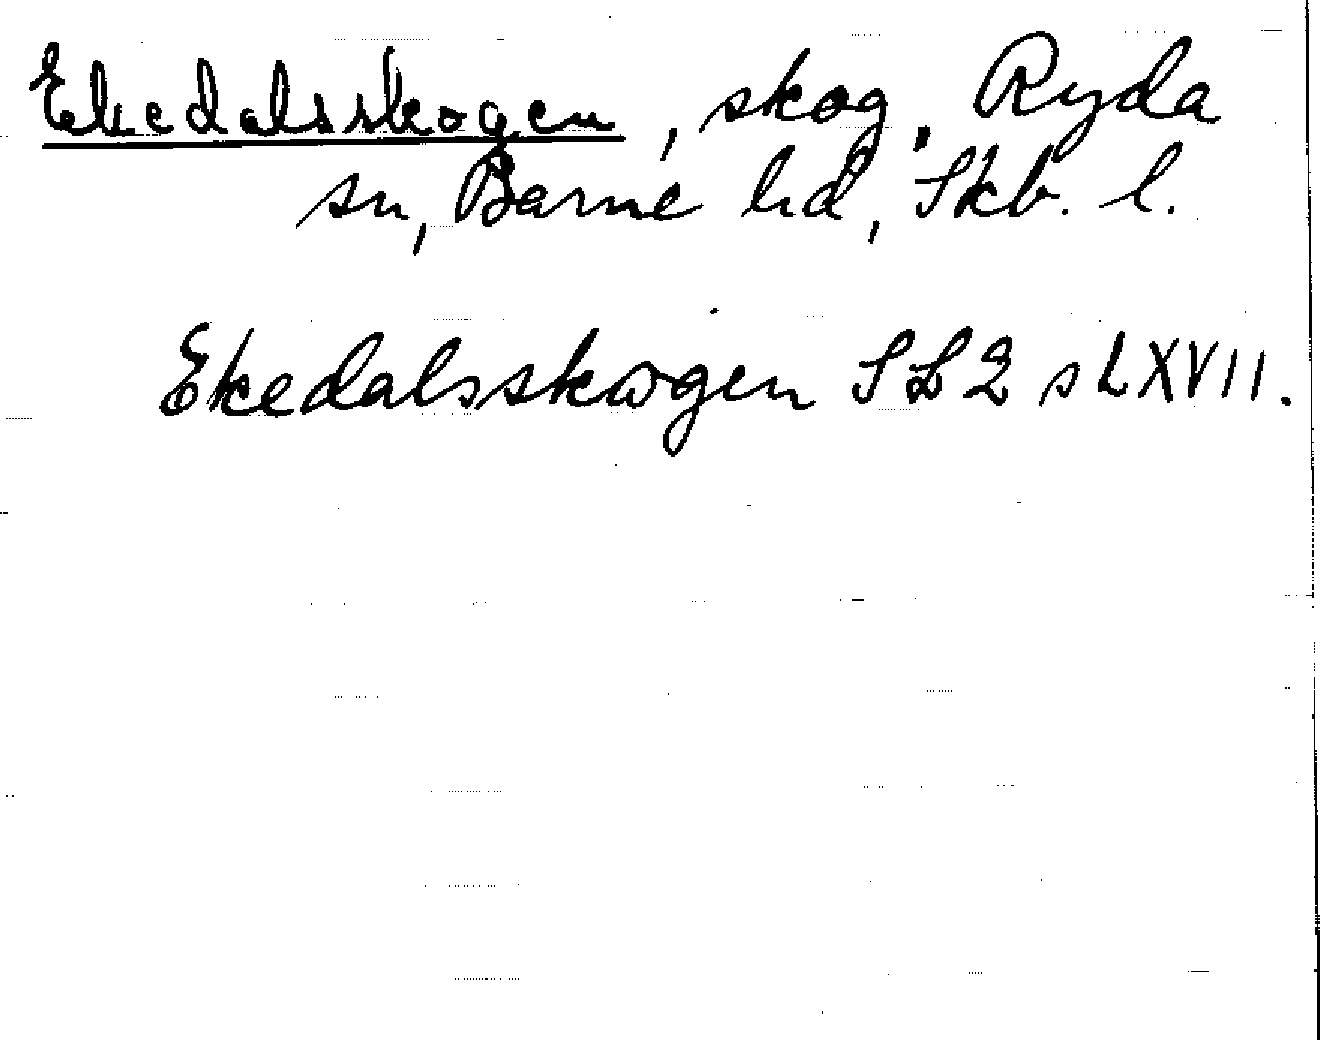 Ekedalsskogen, skog, Ryda
sn, Barne hd, Skb. l.
Ekedalsskogen SL2 s LXVII.